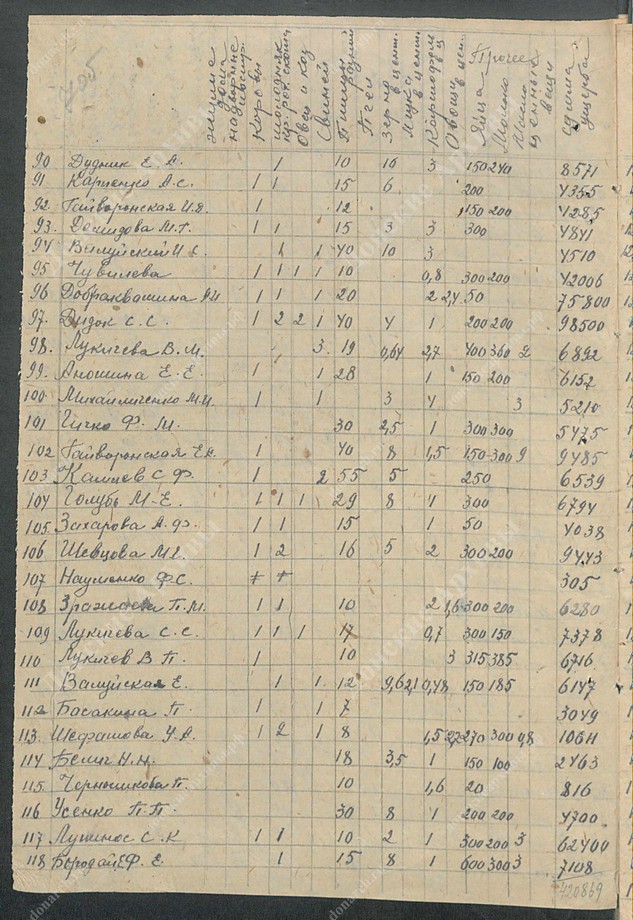 жилые дома надворные постр.
Коровы
молодняк кр. рог. скота
Овец и коз
Свиней
Птицы разной
Пчел
Зерно в цент.
Мука в цент.
Картофель в ц
Овощи в цен.
Прочее
Яйца
Молоко
Масло
ценные вещи
сумма ущерба
90 Дудник Е. А. 1 10 10 3 150 240 8571
91 Карпенко А. С. 1 1 15 6 200 4355
92. Гайворонская И. Я. 1 12 150 200 4285
93. Демидова М. Т. 1 1 15 3 3 300 4841
94 Валуйский И. С. 1 1 40 10 3 4510
95 Чувилева 1 1 1 1 10 0,8 300 200 42006
96 Доброквашина 1 1 1 20 2 2,4 50 75800
97. Дидок С. С. 1 2 2 1 40 4 1 200 200 98500
98. Лукичева В. М. 3. 19 0,64 2,7 400 360 2 6892
99. Аношина Е. Е. 1 1 28 1 150 200 6152
100 Михайличенко М. И. 1 1 3 4 3 5210
101 Гичко Ф. М. 30 2,5 1 300 300 5475
102 Гайворонская Е. К. 1 40 8 1,5 150 300 9 9485
103 С. Ф. 1 2 55 5 250 6539
104 Голубь М. Е. 1 1 1 29 8 1 300 6794
105 Захарова А. Ф. 1 1 15 1 50 4038
106 Шевцова М. Г. 1 2 16 5 2 300 200 9443
107 Науменко Ф. С. 305
108 П. М. 1 1 10 2 1,6 300 200 6280
109 Лукичева С. С. 1 1 1 17 0,7 300 150 7378
110 Лукичев В. П. 1 10 3 315 385 6716
111 Валуйская Е. 1 1 12 9,6 2,1 0,48 150 185 6147
112 Басакина П. 1 7 3049
113 Шефатова У. А. 1 2 1 8 1,5 270 300 0,8 10611
114 Белич Н. Н. 18 3,5 1 150 100 2463
115 Чернышкова П. 10 1,6 20 816
116 Усенко П. П. 30 8 1 200 200 4700
117 Лушинос С. К 1 1 10 2 1 300 200 3 62400
118 Быродай Е. 1 15 8 1 600 300 3 7108
420869